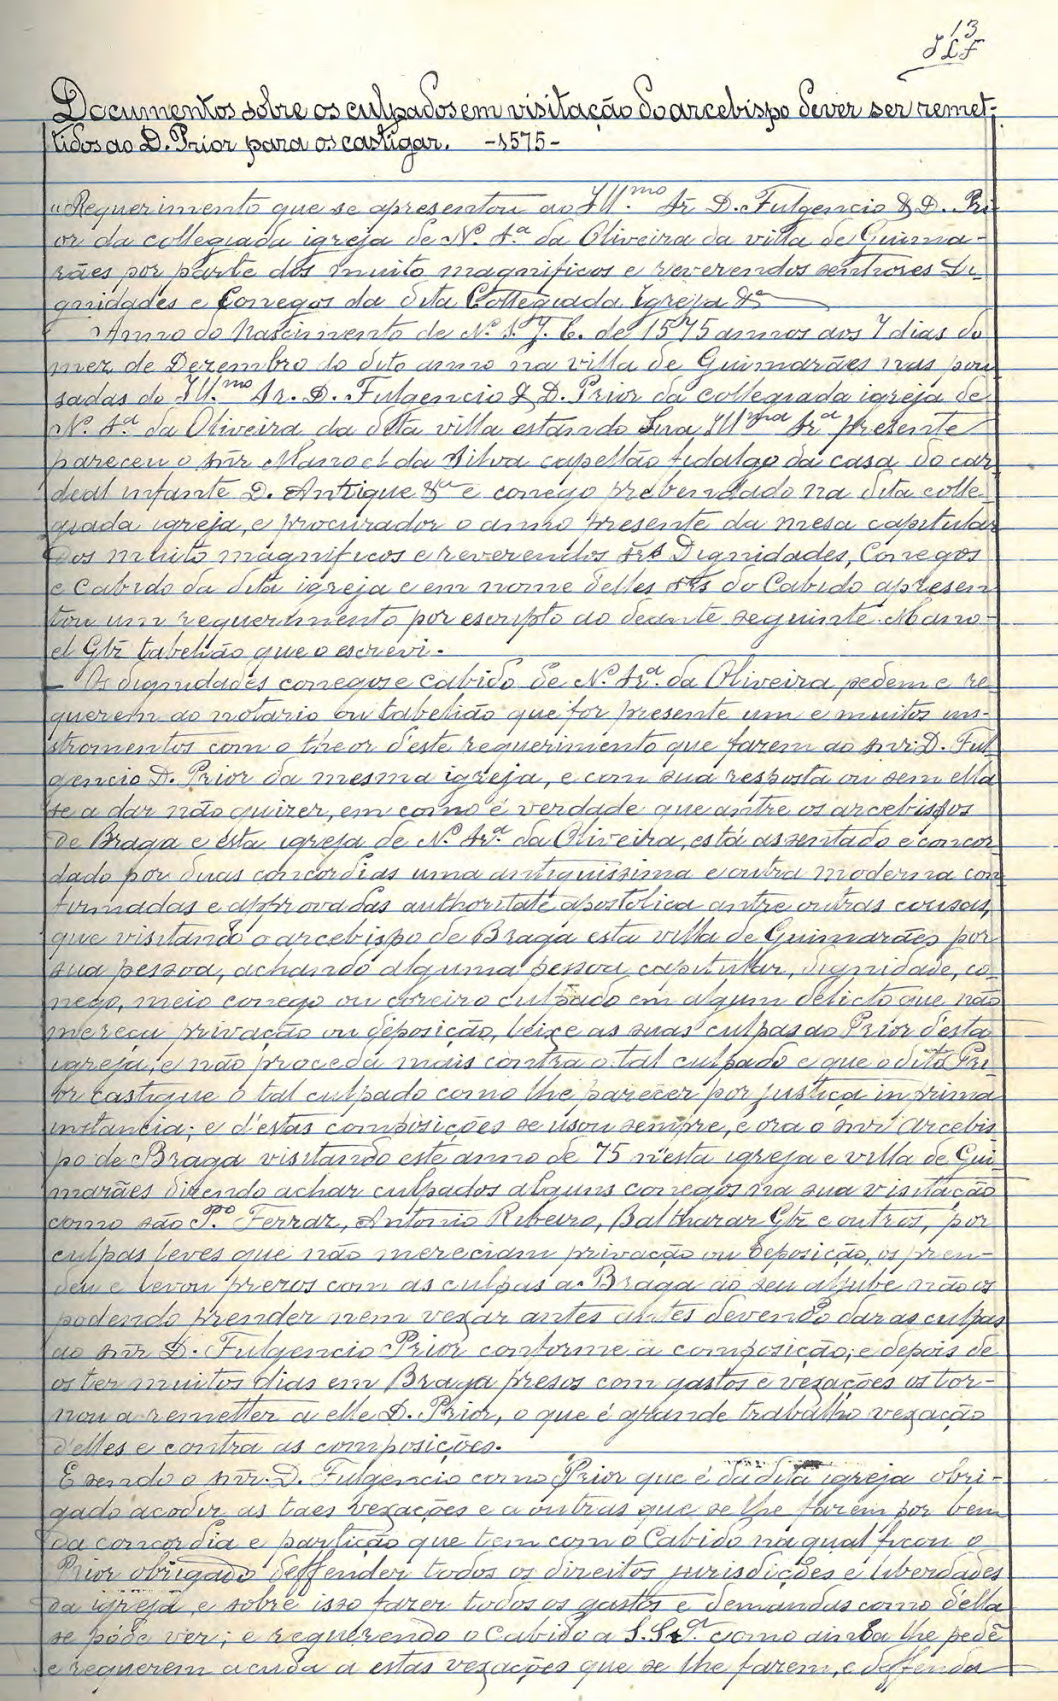 13
JLF
Documentos sobre os culpados em visitação do arcebispo dever ser remet-
tidos ao D. Prior para os castigar. -1575-
"Requerimento que se apresentou ao Ill.mo Sr. D. Fulgencio & D. Pri-
or da collegiada igreja de N. Sr.a da Oliveira da villa de Guima-
rães por parte dos muito magnificos e reverendos senhores Di-
gnidades e Conegos da dita Collegiada Igreja &a
Anno do Nascimento de N. S. J. C. de 1575 annos aos 7 dias do
mez de Dezembro do dito anno na villa de Guimarães nas pou-
sadas do Ill.mo Sr. D. Fulgencio & D. Prior da collegiada igreja de
N. Sr.a da Oliveira da dita villa estando Sua Ill.ma Sr.a presente
pareceu o snr. Manoel da Silva capellão fidalgo da casa do car-
deal infante D. Anrique &a e conego prebendado na dita colle-
giada igreja, e procurador o anno presente da mesa capitular
dos muito magnificos e reverendos Srs Dignidades, Conegos
e Cabido da dita igreja e em nome delles Srs do Cabido apresen-
tou um requerimento por escripto ao deante seguinte. Mano-
el Glz tabelião que o escrevi.
– As dignidades conegos e cabido de N. Sr.a da Oliveira pedem e re-
querem ao notario ou tabelião que for presente um e muitos ins-
stromentos com o theor d'este requerimento que fazem ao snr. D. Ful-
gencio D. Prior da mesma igreja, e com sua resposta ou sem ella
se a dar não quizer, em como é verdade que antre os arcebispos
de Braga e esta igreja de N. Sr.a da Oliveira, está assentado e concor-
dado por duas concordias uma antiquissima e outra moderna con-
firmadas e approvadas authoritate apostolica antre outras cousas,
que visitando o arcebispo de Braga esta villa de Guimarães por
sua pessoa, achando alguma pessoa capitular, dignidade, co-
nego, meio conego ou coreiro culpado em algum delicto que não
mereça privação ou deposição, leixe as suas culpas ao Prior d'esta
igreja, e não proceda mais contra o tal culpado e que o dito Pri-
or castigue o tal culpado como lhe parecer por justiça in prima
instancia; e d'estas composições se usou sempre, e ora o snr. Arcebis-
po de Braga visitando este anno de 75 n'esta igreja e villa de Gui-
marães dizendo achar culpados alguns conegos na sua visitação
como são P.o Ferraz, Antonio Ribeiro, Balthazar Glz e outros, por
culpas leves que não mereciam privação ou deposição, os pren-
deu e levou prezos com as culpas a Braga ao seu aljube não os
podendo prender nem vexar antes antes devendo dar as culpas
ao snr. D. Fulgencio Prior conforme a composição; e depois de
os ter muitos dias em Braga presos com gastos e vexações os tor-
nou a remetter a elle D. Prior, o que é grande trabalho vexação
d'elles e contra as composições.
E sendo o snr. D. Fulgencio como Prior que é da dita igreja obri-
gado acodir as taes vexações e a outras que se lhe fazem por bem
da concordia e partição que tem com o Cabido na qual ficou o
Prior obrigado deffender todos os direitos jurisdições e liberdades
da igreja, e sobre isso fazer todos os gastos e demandas como d'ella
se póde ver; e requerendo o Cabido a S. Sr.a como ainda lhe pede
e requerem acuda a estas vexações que se lhe fazem, e deffenda